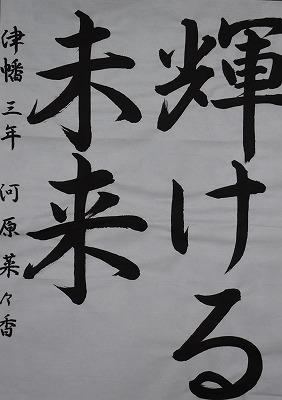 輝ける
未来
津幡 三年 河原 菜々香